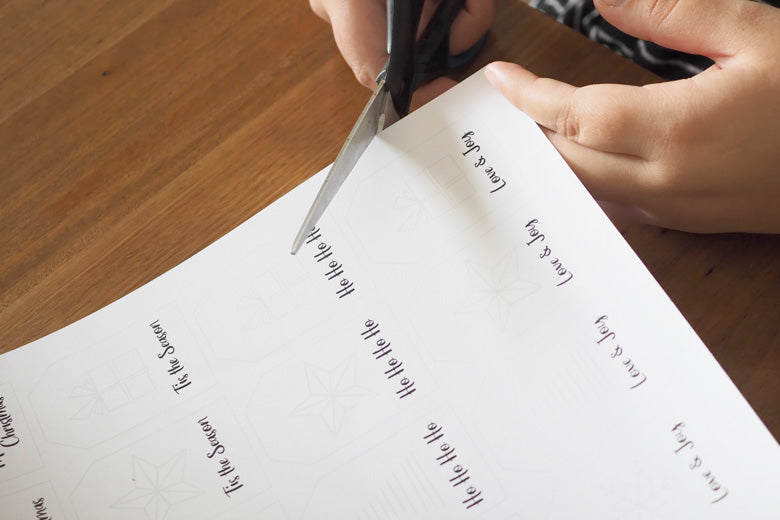 Love & Joy
Love & Joy
Love & Joy
Love & Joy
Ho Ho Ho Ho
Ho Ho Ho Ho
Ho Ho Ho Ho
Tis the Season
Tis the Season
Christmas